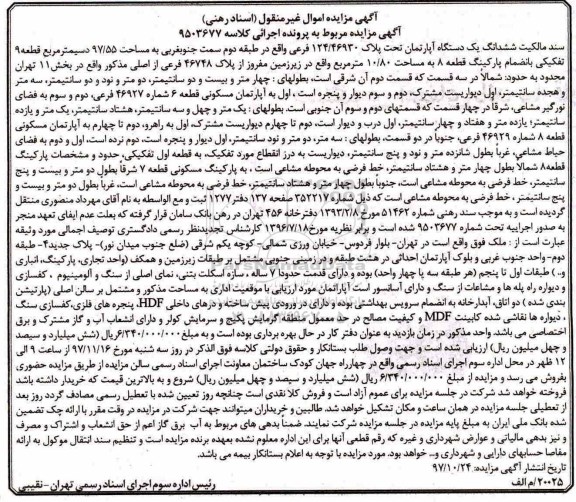 آگهی مزایده اموال غیرمنقول (اسناد رهنی)
آگهی مزایده مربوط به پرونده اجرائی کلاسه ۹۵۰۳۶۷۷
سند مالکیت ششدانگ یک دستگاه آپارتمان تحت پلاک ۱۲۴/۴۶۹۳۰ فرعی واقع در طبقه دوم سمت جنوبغربی به مساحت ۹۷/۵۵ دسیمترمربع قطعه۹
تفکیکی بانضمام پارکینگ قطعه ۸ به مساحت ۱۰/۸۰ مترمربع واقع در زیرزمین مفروز از پلاک ۴۶۷۴۸ فرعی از اصلی مذکور واقع در بخش۱۱ تهران
محدود به حدود: شمالاً در سه قسمت که قسمت دوم آن شرقی است، بطولهای : چهار متر و بیست و دو سانتیمتر، دو متر و نود و دو سانتیمتر، سه متر
و هجده سانتیمتر، اول دیواریست مشترک، دوم و سوم دیوار و پنجره است ، اول به آپارتمان مسکونی قطعه ۶ شماره ۴۶۹۲۷ فرعی، دوم و سوم به فضای
نورگیر مشاعی، شرقاً در چهار قسمت که قسمتهای دوم و سوم آن جنوبی است. بطولهای : یک متر و چهل و سه سانتیمتر، هشتاد سانتیمتر، یک متر و یازده
سانتیمتر؛ یازده متر و هفتاد و چهار سانتیمتر، اول درب و دیوار است، دوم تا چهارم دیواریست مشترک، اول به راهرو، دوم تا چهارم به آپارتمان مسکونی
قطعه ۸ شماره ۴۶۹۲۹ فرعی، جنوباً در دو قسمت، بطولهای : سه متر، دو متر و نود سانتیمتر، اول دیوار و پنجره است، دوم نرده است، اول و دوم به فضای
حیاط مشاعی، غرباً بطول شانزده متر و نود و پنج سانتیمتر، دیواریست به درز انقطاع مورد تفکیک، به قطعه اول تفکیکی، حدود و مشخصات پارکینگ
قطعه۸ شمالاً بطول چهار متر و هشتاد سانتیمتر، خط فرضی به محوطه مشاعی است ، به پارکینگ مسکونی قطعه ۷ شرقاً بطول دو متر و بیست و پنج
سانتیمتر، خط فرضی به محوطه مشاعی است، جنوباً بطول چهار متر و هشتاد سانتیمتر، خط فرضی به محوطه مشاعی است، غرباً بطول دو متر و بیست و
پنج سانتیمتر ، خط فرضی به محوطه مشاعی است که ذیل شماره ۳۵۲۲۱۷ صفحه ۱۳۷ دفتر ۱۲۷۷ ثبت و مع الواسطه به نام آقای مهرداد منصوری منتقل
گردیده است و به موجب سند رهنی شماره ۵۱۴۶۲ مورخ ۱۳۹۳/۲/۸ دفترخانه ۴۵۶ تهران در رهن بانک سامان قرار گرفته که بعلت عدم ایفای تعهد منجر
به صدور اجراییه تحت شماره ۹۵۰۳۶۷۷ شده است و برابر نظریه مورخ۱۳۹۶/۷/۱۸ کارشناس تجدیدنظر رسمی دادگستری توصیف اجمالی مورد وثیقه
عبارت است از : ملک فوق واقع است در تهران- بلوار فردوس- خیابان ورزی شمالی- کوچه یکم شرقی (ضلع جنوب میدان نور)- پلاک جدید۴- طبقه
دوم- واحد جنوب غربی و بلوک آپارتمان احداثی در هشت طبقه و در زمینی جنوبی مشتمل بر طبقات زیرزمین و همکف (واحد تجاری، پارکینگ، انباری
و..) طبقات اول تا پنجم (هر طبقه سه یا چهار واحد) بوده و دارای قدمت حدود ۷ ساله ، سازه اسکلت بتنی، نمای اصلی از سنگ و آلومینیوم ، کفسازی
و دیواره راه پله ها و مشاعات از سنگ و دارای آسانسور است آپارتمان مورد ارزیابی با موقعیت اداری به مساحت مذکور و مشتمل بر سالن اصلی (پارتیشن
بندی شده ) دو اتاق، آبدارخانه به انضمام سرویس بهداشتی بوده و دارای در ورودی پیش ساخته و درهای داخلی HDF، پنجره های فلزی،کفسازی سنگ
، دیواره ها نقاشی شده کابینت MDF و کیفیت مصالح در حد معمول منطقه گرمایش پکیج و سرمایش کولر و دارای انشعاب آب و گاز مشترک و برق
اختصاصی می باشد. واحد مذکور در زمان بازدید به عنوان دفتر کار در حال بهره برداری بوده است و به مبلغ ۶/۳۴۰/۰۰۰/۰۰۰ریال (شش میلیارد و سیصد
و چهل میلیون ریال) ارزیابی شده است و جهت وصول طلب بستانکار و حقوق دولتی کلاسه فوق الذکر در روز سه شنبه مورخ ۹۷/۱۱/۱۶ از ساعت ۹ الی
۱۲ ظهر در محل اداره سوم اجرای اسناد رسمی واقع در چهارراه جهان کودک ساختمان معاونت اجرای اسناد رسمی سالن مزایده از طریق مزایده حضوری
بفروش می رسد و مزایده از مبلغ ۶/۳۴۰/۰۰۰/۰۰۰ ریال (شش میلیارد و سیصد و چهل میلیون ریال) شروع و به بالاترین قیمت که خریدار داشته باشد
فروخته خواهد شد شرکت در جلسه مزایده برای عموم آزاد است و فروش کلا نقدی است چنانچه روز تعیین شده با تعطیل رسمی مصادف گردد روز بعد
از تعطیلی جلسه مزایده در همان ساعت و مکان تشکیل خواهد شد. طالبین و خریداران میتوانند جهت شرکت در مزایده در وقت مقرر با ارائه چک تضمین
شده بانک ملی ایران به مبلغ پایه مزایده در جلسه مزایده شرکت نمایند. ضمناً بدهی های مربوط به آب برق گاز اعم از حق انشعاب و اشتراک و مصرف
و نیز بدهی مالیاتی و عوارض شهرداری و غیره که رقم قطعی آنها برای این اداره معلوم نشده بعهده برنده مزایده است و تنظیم سند انتقال موکول به ارائه
مفاصا حسابهای دارایی و شهرداری و... خواهد بود. مورد مزایده با توجه به اعلام بستانکار بیمه می باشد.
تاریخ انتشار آگهی مزایده: ۹۷/۱۰/۲۴
۲۰۰۲۵/م الف
رئیس اداره سوم اجرای اسناد رسمی تهران - نقیبی